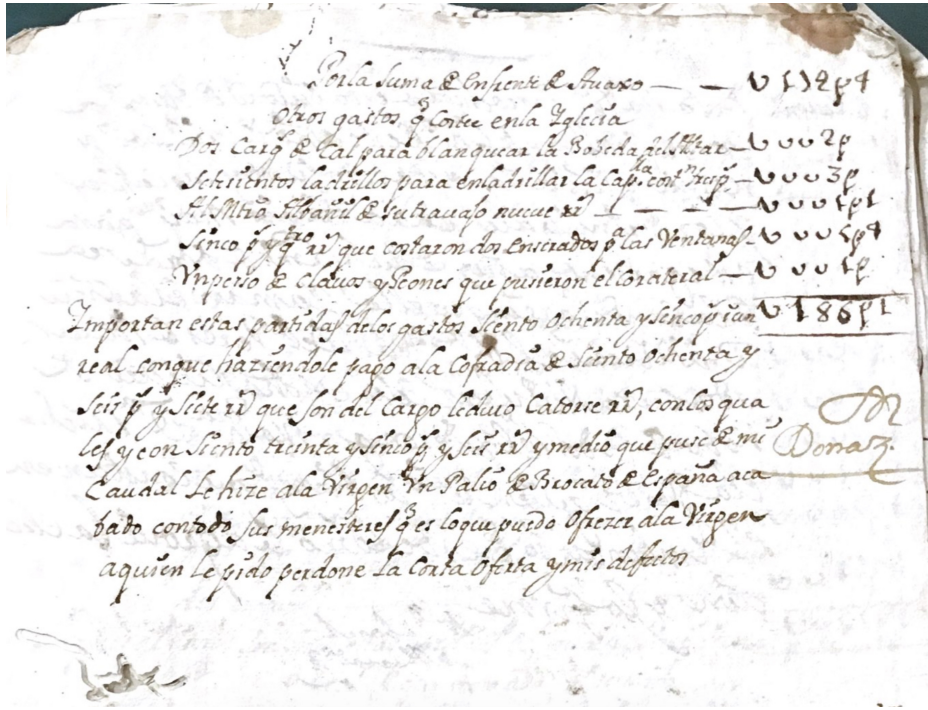 Por la suma de Enfrente de Avaxo — — U 174p4
Otros gastos q̃ Corrie en la Yglecia
Dos Carg.s de Cal para blanquear la Bobeda del Altar — U 002p
Setesientos ladrillos para enladrillar la Cap.a con — U 003p
Al Mtrô Albañil de su travajo nueve rr.s — — — U 001p1
Sinco p.s y qtro rr.s que costaron dos Enserados p.a las Ventanas — U 005p4
Vn peso de Clavos y Peones que pusieron el Corateral — U 001p
Ymportan estas partidas de los gastos Siento Ochenta y sinco p.s i un U 186p1
real con que hasiendole pago a la Cofradia de Siento Ochenta y
Seis p.s y Siete rr.s que son del Cargo le devo Catorse rr.s, con los qua
les y con Siento treinta y sinco p.s y Seis rr.s y medio que puse de mi
Donaz.n
Caudal le hize a la Virgen Vn Palio de Brocato de España aca
bado con todo sus menesteres q̃ es lo que puedo Ofrezer a la Virgen
a quien le pido perdone la Corta Oferta y mis defectos